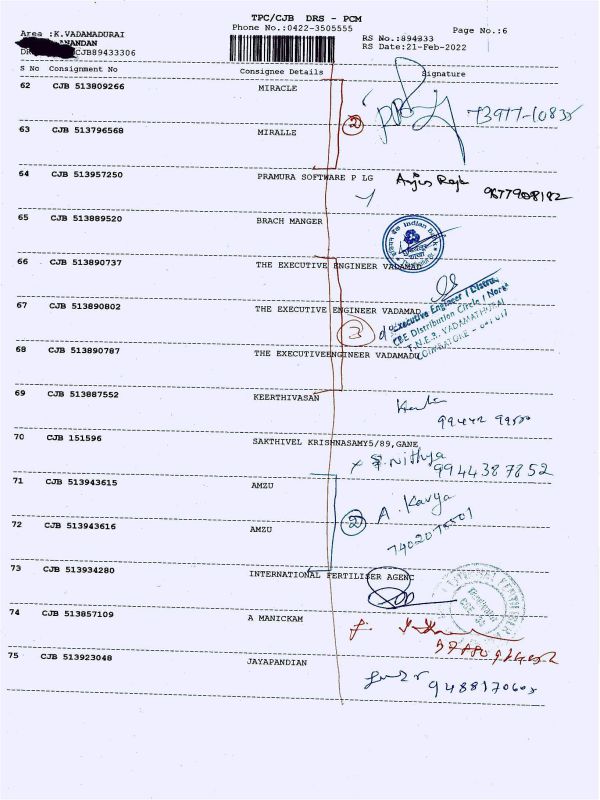 TPC/CJB DRS - PCM
Area :K.VADAMADURAI
Phone No.:0422-3505555
Page No.:6
ANANDAN
RS No.:894333
CJB89433306
RS Date:21-Feb-2022
S No Consignment No Consignee Details Signature
62 CJB 513809266 MIRACLE
2 73977-10835
63 CJB 513796568 MIRALLE
64 CJB 513957250 PRAMURA SOFTWARE P LG
9677908182
65 CJB 513889520 BRACH MANGER
Indian Bank
66 CJB 513890737 THE EXECUTIVE ENGINEER VADAMAD
67 CJB 513890802 THE EXECUTIVE ENGINEER VADAMAD
3
Executive Engineer / Distrn.
CBE Distribution Circle / North
T.N.E.B., VADAMATHURAI
COIMBATORE - 641 017
68 CJB 513890787 THE EXECUTIVEENGINEER VADAMADU
69 CJB 513887552 KEERTHIVASAN
70 CJB 151596 SAKTHIVEL KRISHNASAMY5/89,GANE,
x S. Nithya
9944387852
71 CJB 513943615 AMZU
A. Kavya
2
72 CJB 513943616 AMZU
73 CJB 513934280 INTERNATIONAL FERTILISER AGENC
74 CJB 513857109 A MANICKAM
75 CJB 513923048 JAYAPANDIAN